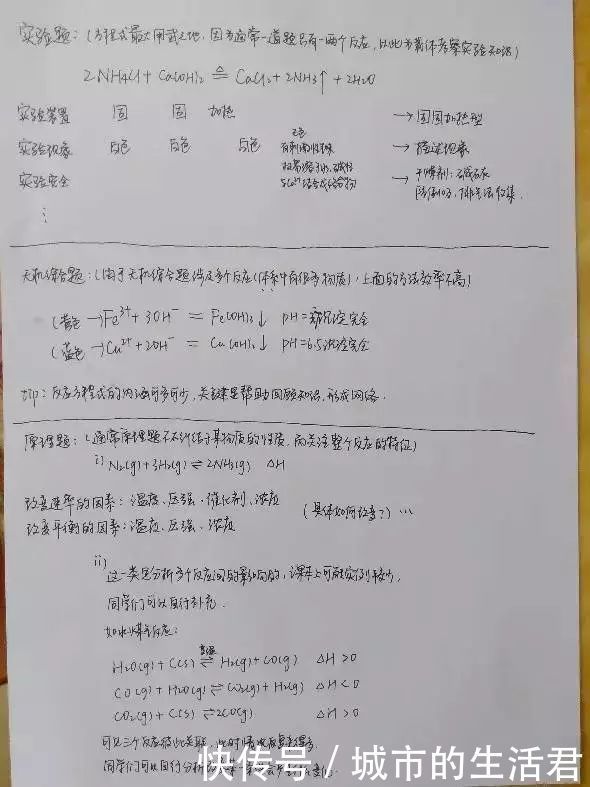 实验题：(方程式最大用武之地，因为通常一道题只有一两个反应，以此为载体考察实验知识)
2NH4Cl + Ca(OH)₂ ≜ CaCl₂ + 2NH₃↑ + 2H₂O
实验装置 固 固 加热 → 固固加热型
实验现象 白色 白色 白色 无色 有刺激性气味 → 描述现象
实验安全 极易溶于水，碱性 → 干燥剂：碱石灰
防倒吸，排空气法收集
⋮
无机综合题：(由于无机综合题涉及多个反应(体系中有很多物质)，上面的方法效率不高)
(黄色→)Fe³⁺ + 3OH⁻ = Fe(OH)₃↓ pH= 沉淀完全
(蓝色→)Cu²⁺ + 2OH⁻ = Cu(OH)₂↓ pH=6.5沉淀完全
tip：反应方程式的内涵可多可少，关键是帮助回顾知识，形成网络.
原理题：(通常原理题不纠结于某物质的性质，而关注整个反应的特征)
i) N₂(g)+3H₂(g) ⇌ 2NH₃(g) ΔH
改变速率的因素：温度、压强、催化剂、浓度
改变平衡的因素：温度、压强、浓度 (具体如何改变？) …
ii)
这一类是分析多个反应间的影响的，课本上可能实例较少，
同学们可以自行补充.
如水煤气反应：
H₂O(g) + C(s) ⇌ H₂(g) + CO(g) ΔH >0
CO(g) + H₂O(g) ⇌ CO₂(g) + H₂(g) ΔH <0
CO₂(g) + C(s) ⇌ 2CO(g) ΔH >0
可见三个反应彼此关联，此时情况复杂得多.
同学们可以自行分析
快传号 / 城市的生活君